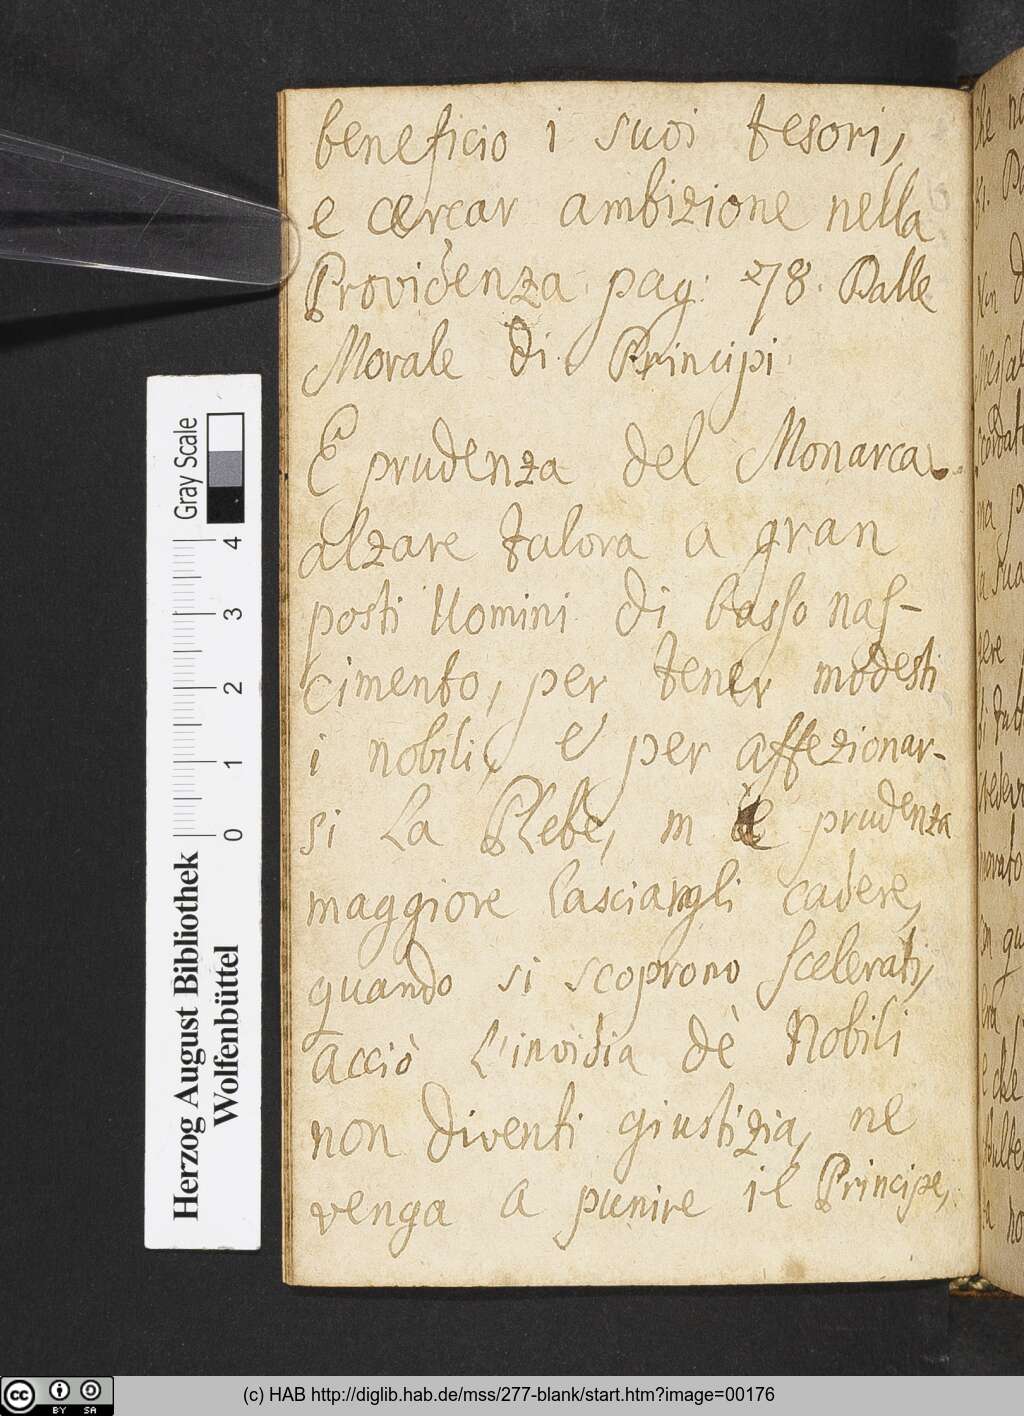 beneficio i suoi tesori,
e cercar ambizione nella
Providenza pag: 78. Dalle
Morale di Principi
E prudenza del Monarca
alzare talora a gran
posti Uomini di basso nas-
cimento, per tener modesti
i nobili, e per affezionar-
si la Plebe, m è prudenza
maggiore lasciargli cadere,
quando si scoprono scelerati,
acciò l'invidia dè Nobili
non diventi giustizia, ne
venga a punire il Principe,
Gray Scale
4
3
2
1
0
Herzog August Bibliothek
Wolfenbüttel
cc BY SA
(c) HAB http://diglib.hab.de/mss/277-blank/start.htm?image=00176